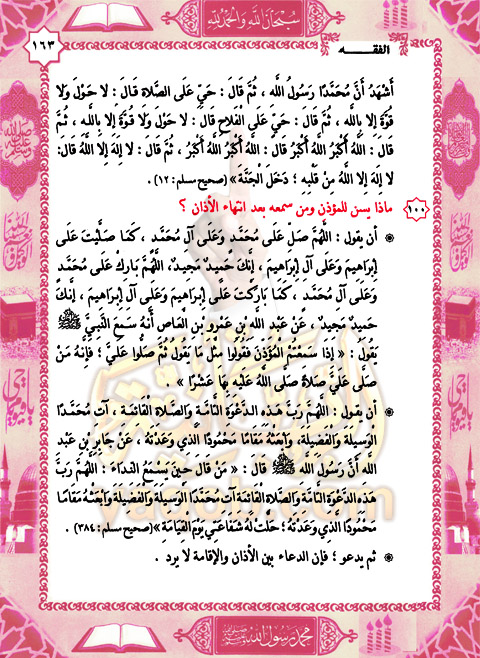 سُبْحَانَ اللَّهِ وَالْحَمْدُ لِلَّهِ
الفقـــــه
١٦٣
أَشْهَدُ أَنَّ مُحَمَّدًا رَسُولُ اللَّهِ ، ثُمَّ قَالَ : حَيَّ عَلَى الصَّلَاةِ قَالَ : لا حَوْلَ وَلا
قُوَّةَ إِلا بِاللَّهِ ، ثُمَّ قَالَ : حَيَّ عَلَى الْفَلَاحِ قَالَ : لا حَوْلَ وَلَا قُوَّةَ إِلا بِاللَّهِ ، ثُمَّ
قَالَ : اللَّهُ أَكْبَرُ اللَّهُ أَكْبَرُ قَالَ : اللَّهُ أَكْبَرُ اللَّهُ أَكْبَرُ ، ثُمَّ قَالَ : لا إِلَهَ إِلا اللَّهُ قَالَ:
لا إِلَهَ إِلا اللَّهُ مِنْ قَلْبِهِ ؛ دَخَلَ الْجَنَّةَ » (صحيح مسلم: ١٢) .
١٠٠ ماذا يسن للمؤذن ومن سمعه بعد انتهاء الأذان ؟
أن يقول : اللَّهُمَّ صَلِّ عَلَى مُحَمَّدٍ وَعَلَى آلِ مُحَمَّدٍ ، كَمَا صَلَّيْتَ عَلَى
إِبْرَاهِيمَ وَعَلَى آلِ إِبْرَاهِيمَ ، إِنَّكَ حَمِيدٌ مَجِيدٌ، اللَّهُمَّ بَارِكْ عَلَى مُحَمَّدٍ
وَعَلَى آلِ مُحَمَّدٍ ، كَمَا بَارَكْتَ عَلَى إِبْرَاهِيمَ وَعَلَى آلِ إِبْرَاهِيمَ ، إِنَّكَ
حَمِيدٌ مَجِيدٌ ، عَنْ عَبْدِ اللَّهِ بْنِ عَمْرِو بْنِ الْعَاصِ أَنَّهُ سَمِعَ النَّبِيَّ ﷺ
يَقُولُ : « إِذَا سَمِعْتُمُ الْمُؤَذِّنَ فَقُولُوا مِثْلَ مَا يَقُولُ ثُمَّ صَلُّوا عَلَيَّ ؛ فَإِنَّهُ مَنْ
صَلَّى عَلَيَّ صَلَاةً صَلَّى اللَّهُ عَلَيْهِ بِهَا عَشْرًا »
أن يقول : اللَّهُمَّ رَبَّ هَذِهِ الدَّعْوَةِ التَّامَّةِ وَالصَّلَاةِ الْقَائِمَةِ ، آتِ مُحَمَّدًا
الْوَسِيلَةَ وَالْفَضِيلَةَ، وَابْعَثْهُ مَقَامًا مَحْمُودًا الَّذِي وَعَدْتَهُ ، عَنْ جَابِرِ بْنِ عَبْدِ
اللَّهِ أَنَّ رَسُولَ اللَّهِ ﷺ قَالَ : « مَنْ قَالَ حِينَ يَسْمَعُ النِّدَاءَ : اللَّهُمَّ رَبَّ
هَذِهِ الدَّعْوَةِ التَّامَّةِ وَالصَّلَاةِ الْقَائِمَةِ آتِ مُحَمَّدًا الْوَسِيلَةَ وَالْفَضِيلَةَ وَابْعَثْهُ مَقَامًا
مَحْمُودًا الَّذِي وَعَدْتَهُ ؛ حَلَّتْ لَهُ شَفَاعَتِي يَوْمَ الْقِيَامَةِ »(صحيح مسلم: ٣٨٤) .
ثم يدعو ؛ فإن الدعاء بين الأذان والإقامة لا يرد .
محمد رسول الله ﷺ